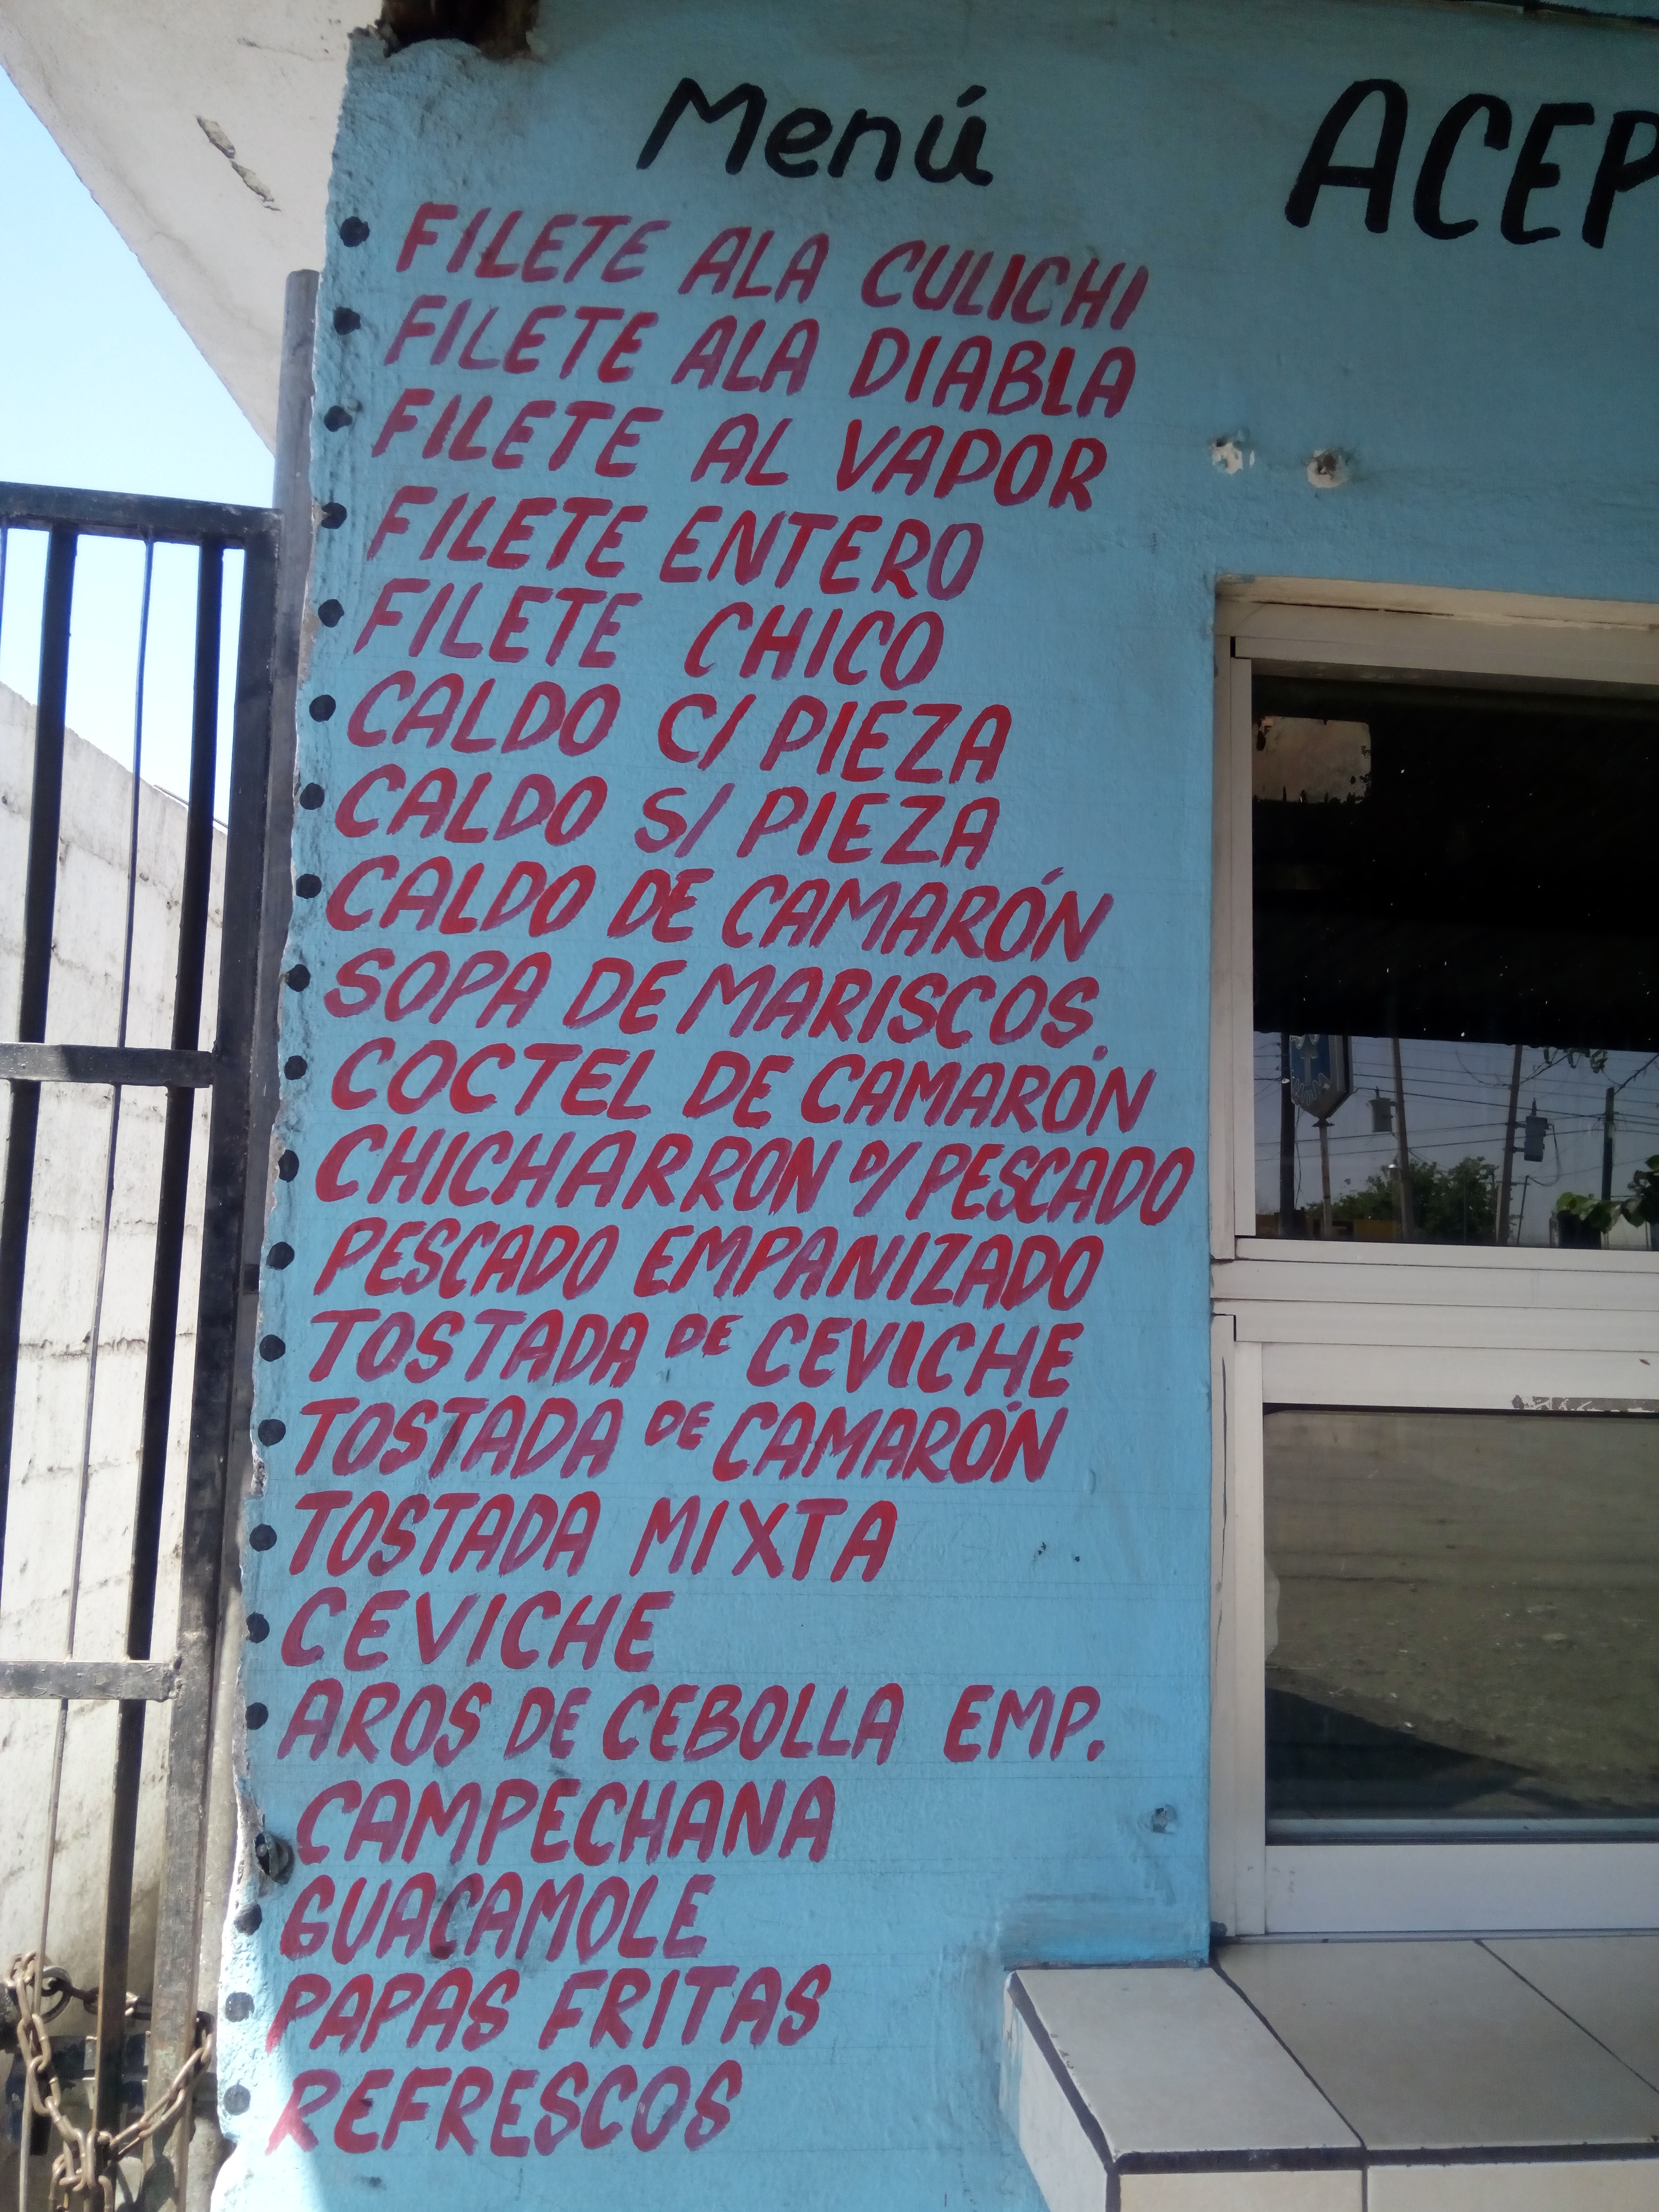 Menú
ACEP
FILETE ALA CULICHI
FILETE ALA DIABLA
FILETE AL VAPOR
FILETE ENTERO
FILETE CHICO
CALDO C/ PIEZA
CALDO S/ PIEZA
CALDO DE CAMARÓN
SOPA DE MARISCOS.
COCTEL DE CAMARÓN
CHICHARRON D/ PESCADO
PESCADO EMPANIZADO
TOSTADA DE CEVICHE
TOSTADA DE CAMARÓN
TOSTADA MIXTA
CEVICHE
AROS DE CEBOLLA EMP.
CAMPECHANA
GUACAMOLE
PAPAS FRITAS
REFRESCOS